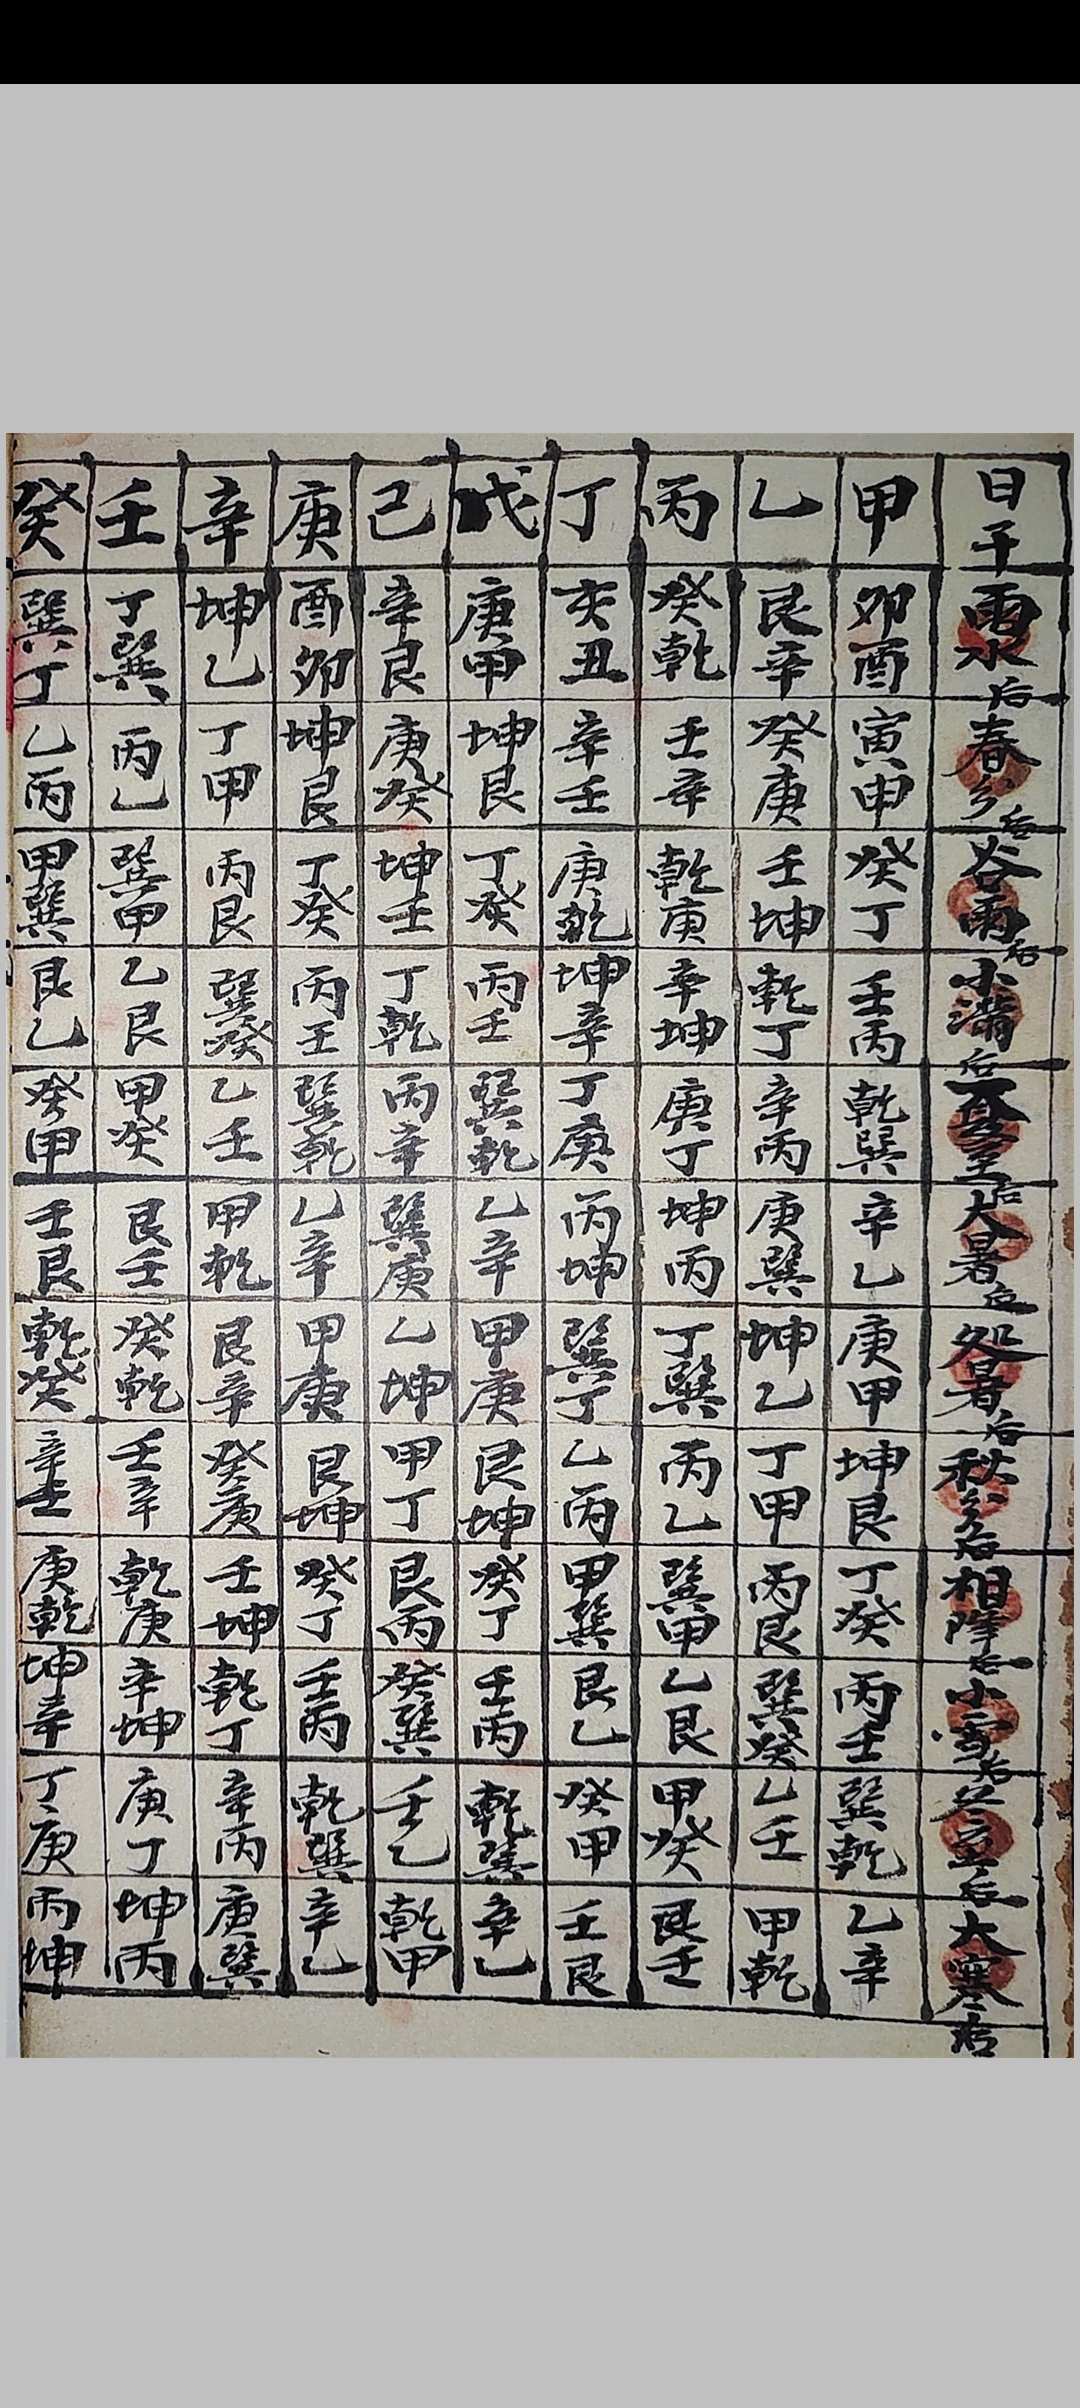 日干 雨水后 春分后 谷雨后 小满后 夏至后 大暑后 处暑后 秋分后 相降后 小雪后 冬至后 大寒后
甲 卯酉 寅申 癸丁 壬丙 乾巽 辛乙 庚甲 坤艮 丁癸 丙壬 巽乾 乙辛
乙 艮辛 癸庚 壬坤 乾丁 辛丙 庚巽 坤乙 丁甲 丙艮 巽癸 乙壬 甲乾
丙 癸乾 壬辛 乾庚 辛坤 庚丁 坤丙 丁巽 丙乙 巽甲 乙艮 甲癸 艮壬
丁 亥丑 辛壬 庚乾 坤辛 丁庚 丙坤 巽丁 乙丙 甲巽 艮乙 癸甲 壬艮
戊 庚甲 坤艮 丁癸 丙壬 巽乾 乙辛 甲庚 艮坤 癸丁 壬丙 乾巽 辛乙
己 辛艮 庚癸 坤壬 丁乾 丙辛 巽庚 乙坤 甲丁 艮丙 癸巽 壬乙 乾甲
庚 酉卯 坤艮 丁癸 丙壬 巽乾 乙辛 甲庚 艮坤 癸丁 壬丙 乾巽 辛乙
辛 坤乙 丁甲 丙艮 巽癸 乙壬 甲乾 艮辛 癸庚 壬坤 乾丁 辛丙 庚巽
壬 丁巽 丙乙 巽甲 乙艮 甲癸 艮壬 癸乾 壬辛 乾庚 辛坤 庚丁 坤丙
癸 巽丁 乙丙 甲巽 艮乙 癸甲 壬艮 乾癸 辛壬 庚乾 坤辛 丁庚 丙坤